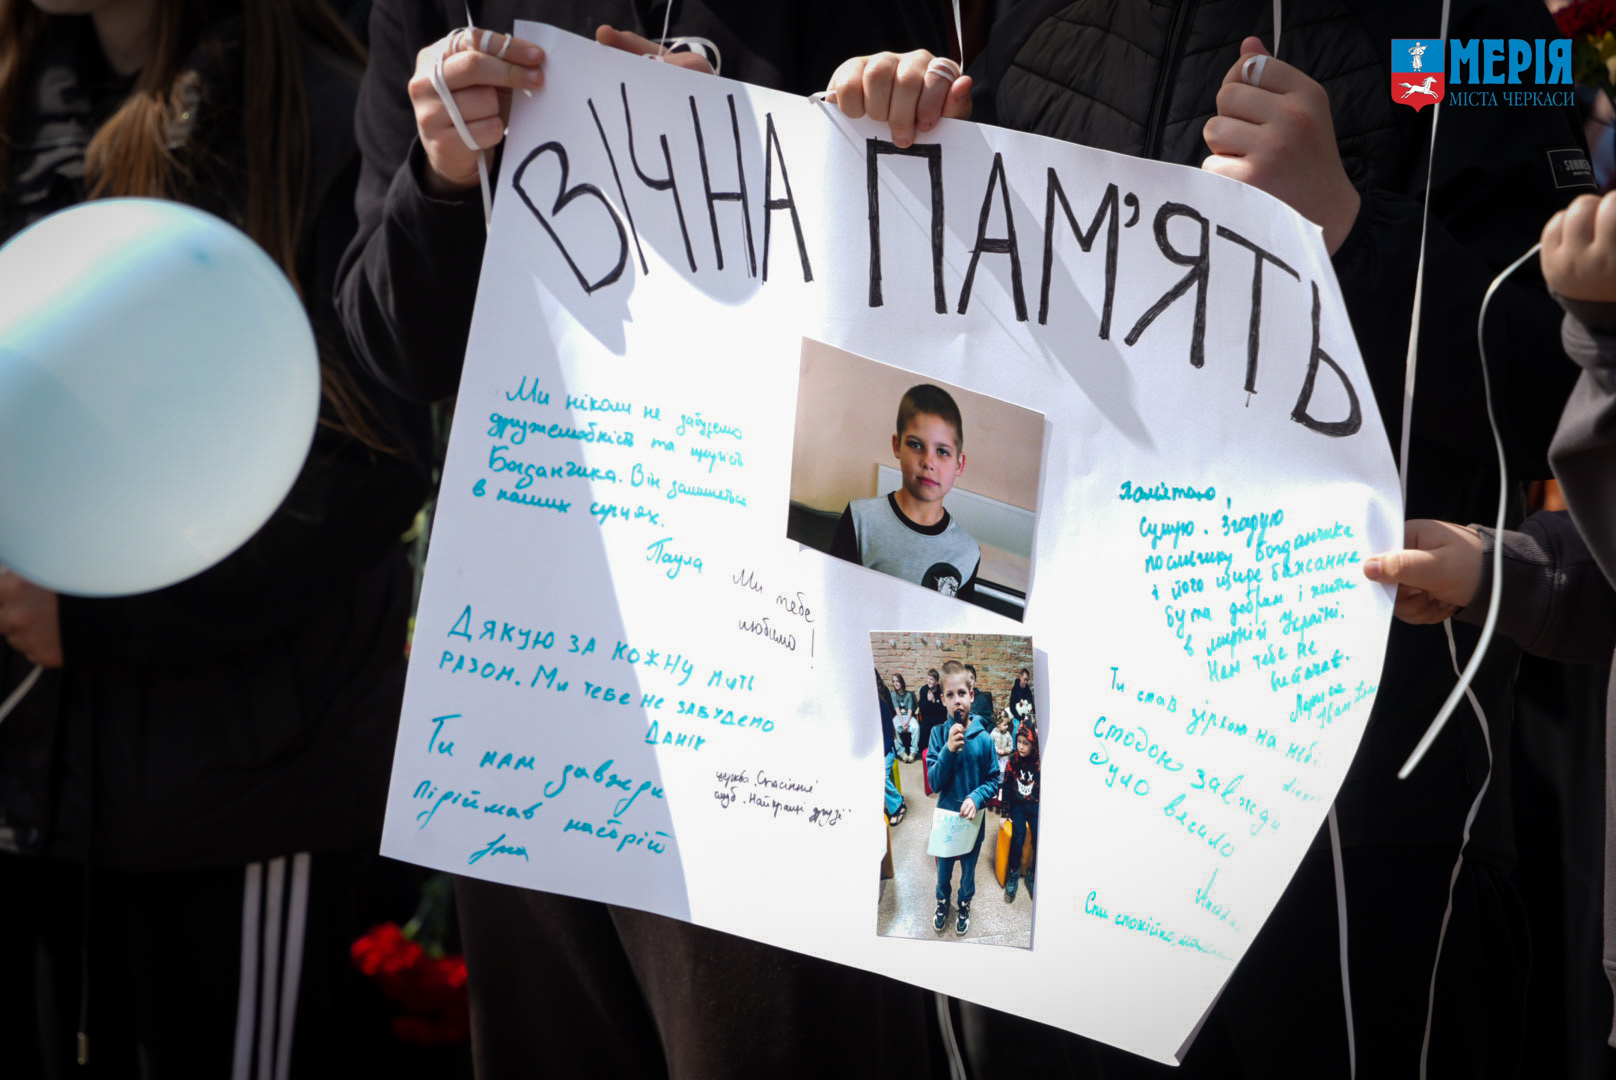 МЕРІЯ
МІСТА ЧЕРКАСИ
ВІЧНА ПАМ'ЯТЬ
Ми ніколи не забудемо
дружелюбність та щирість
Богданчика. Він залишиться
в наших серцях.
Паула
Ми тебе
любимо!
ДЯКУЮ ЗА КОЖНУ МИТЬ
РАЗОМ. МИ ТЕБЕ НЕ ЗАБУДЕМО
ДАНІК
Ти нам завжди
підіймав настрій
церква "Спасіння"
клуб "Найкращі друзі"
Пам'ятаю,
сумую. Згадую
посмішку Богданчика
і його щире бажання
бути добрим і жити
в мирній Україні.
Нам тебе не
вистачає.
Ти став зіркою на небі
С тобою завжди
було весело
Спи спокійно,
ДЯКУЮ
БОГУ
ЗА